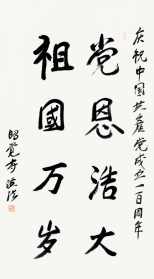 庆祝中国共产党成立一百周年
党恩浩大
祖國万岁
昭觉寺